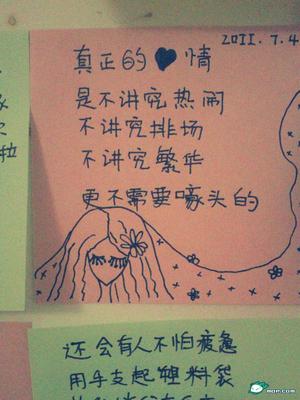 2011.7.4
真正的♥情
是不讲究热闹
不讲究排场
不讲究繁华
更不需要嚎头的
还会有人不怕疲惫
用手支起塑料袋